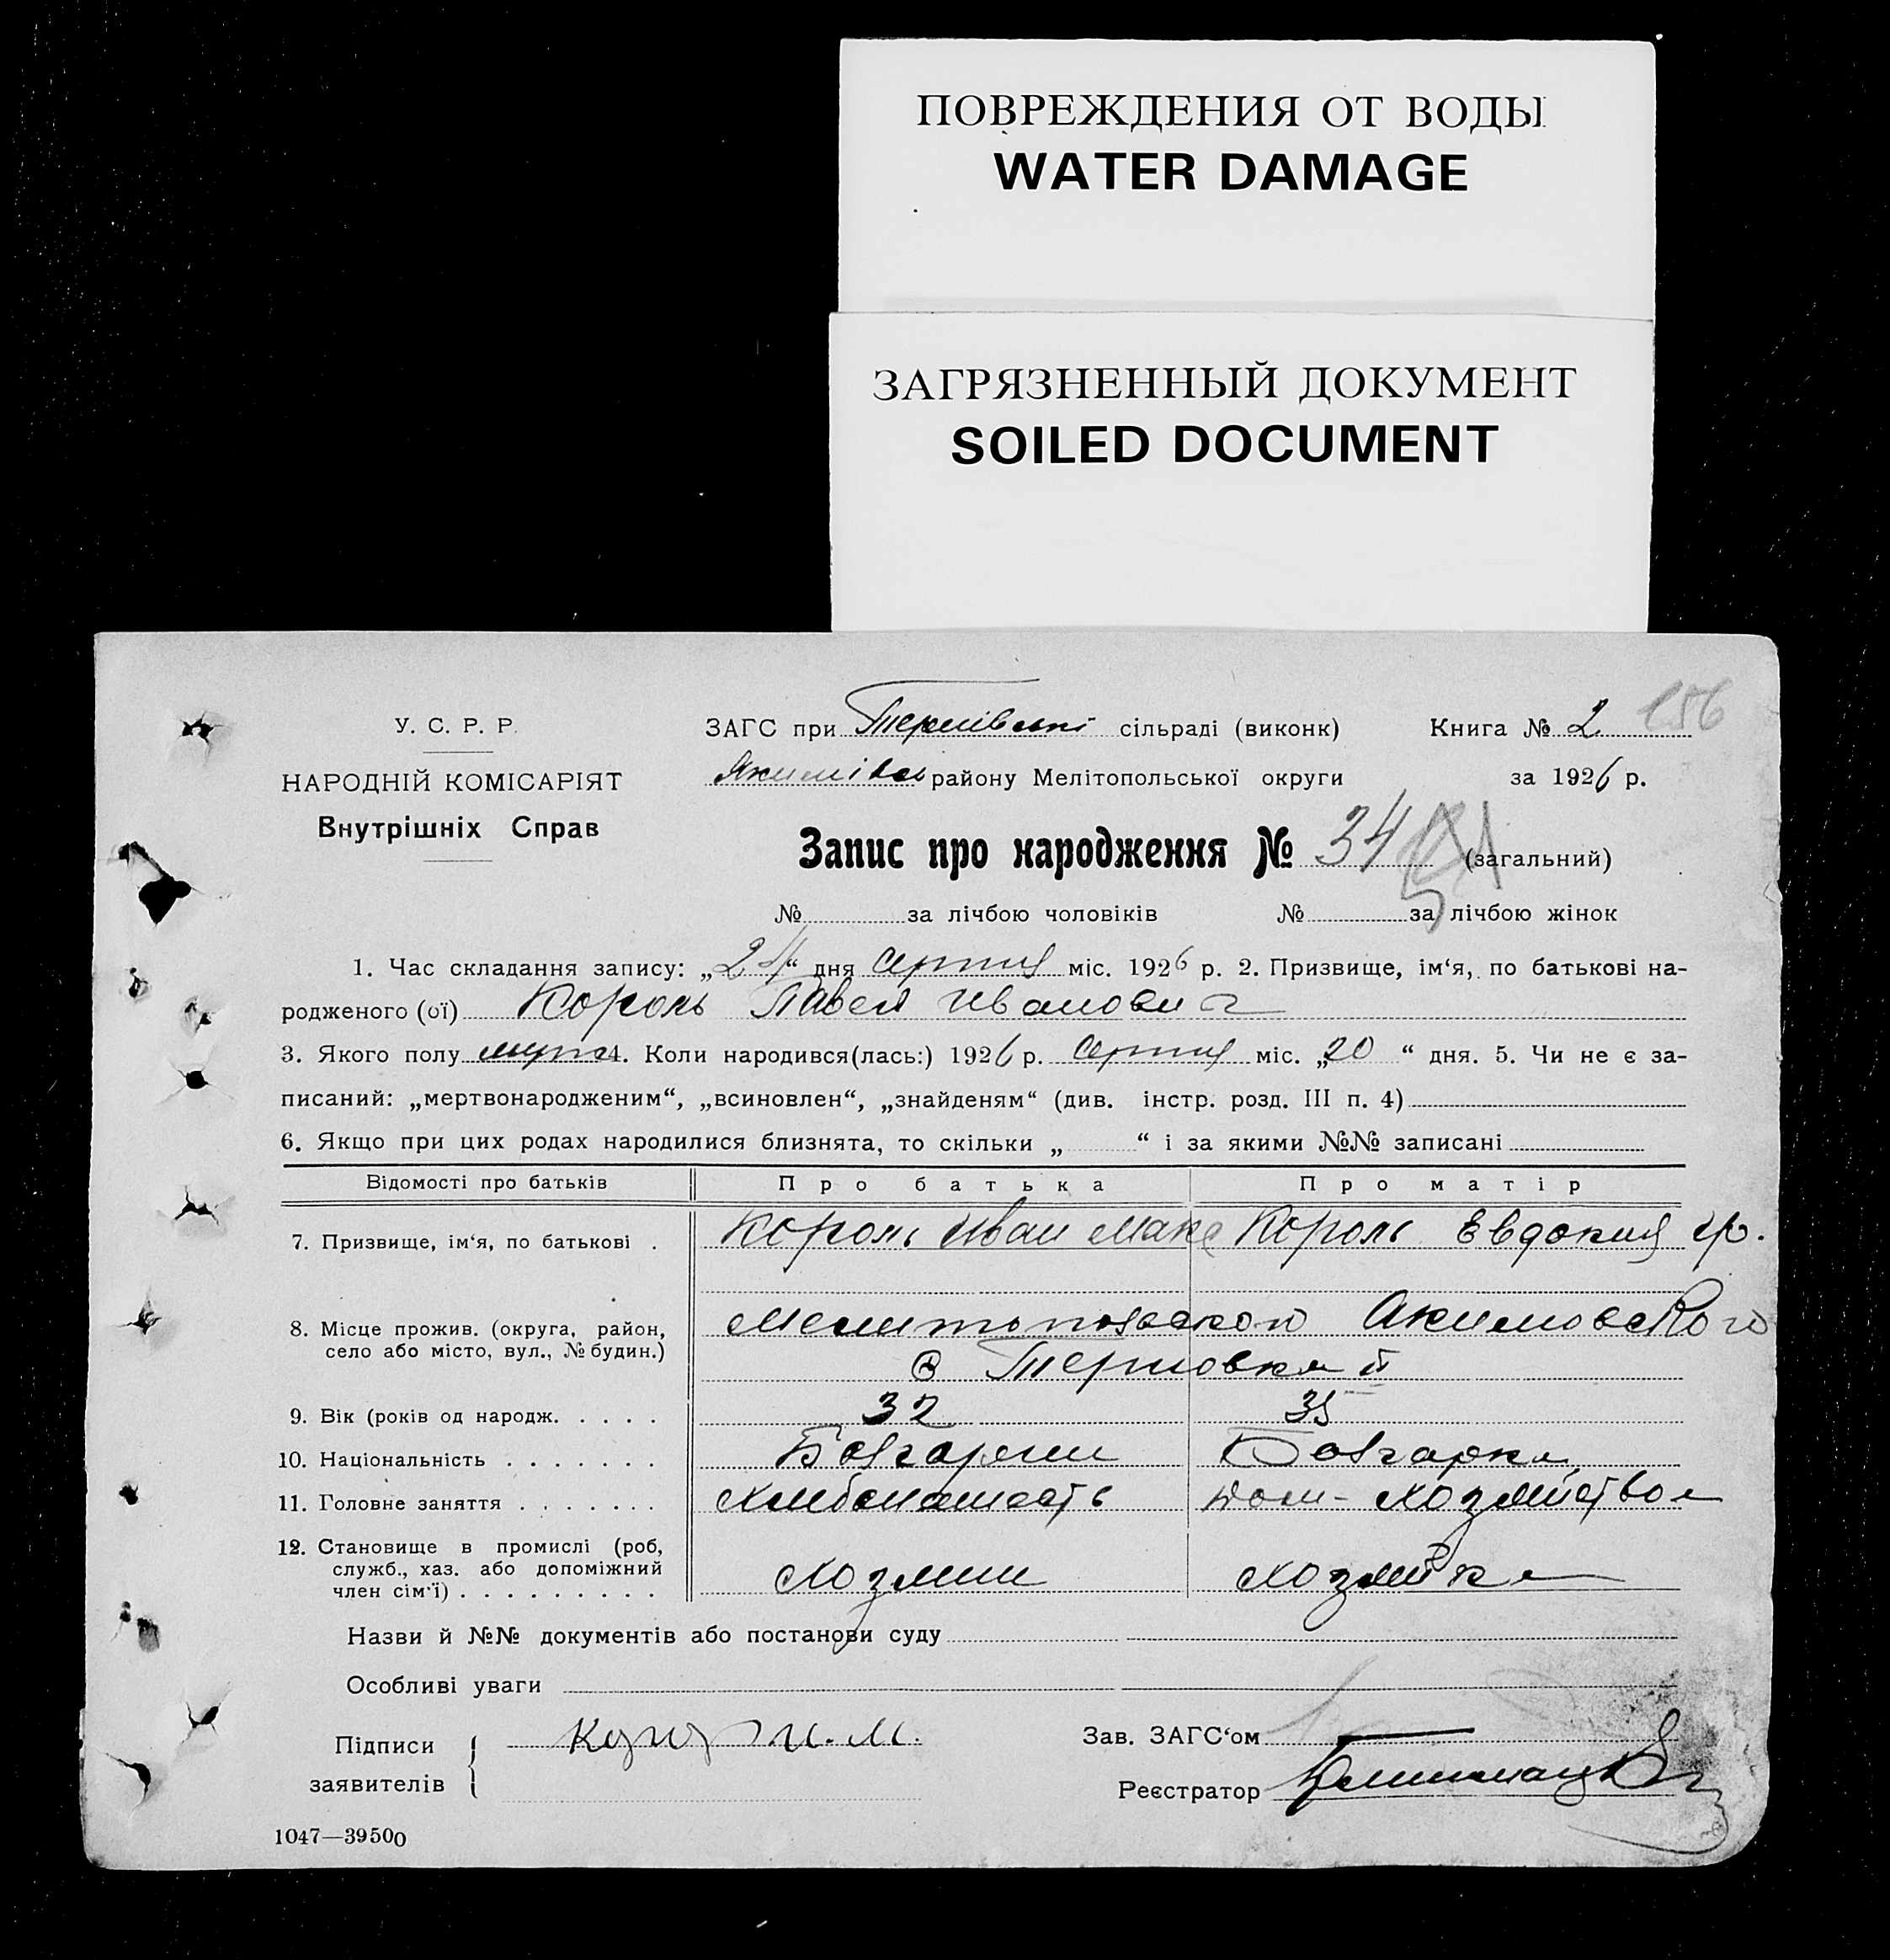 ПОВРЕЖДЕНИЯ ОТ ВОДЫ
WATER DAMAGE
ЗАГРЯЗНЕННЫЙ ДОКУМЕНТ
SOILED DOCUMENT
156
У. С. Р. Р.
НАРОДНІЙ КОМІСАРІЯТ
Внутрішніх Справ
ЗАГС при Тернівські сільраді (виконк) Книга № 2
Якимівск району Мелітопольської округи за 1926 р.
Запис про народження № 34 (загальний)
№ за лічбою чоловіків № за лічбою жінок
1. Час складання запису: „24“ дня серпня міс. 1926 р. 2. Призвище, ім‘я, по батькові на-
родженого (ої) Король Павел Иванович
3. Якого полу муж 4. Коли народився(лась:) 1926 р. серпня міс. „20“ дня. 5. Чи не є за-
писаний: „мертвонародженим“, „всиновлен“, „знайденям“ (див. інстр. розд. III п. 4)
6. Якщо при цих родах народилися близнята, то скільки „ “ і за якими №№ записані
Відомості про батьків Про батька Про матір
7. Призвище, ім‘я, по батькові . Король Иван Макс Король Евдокия Гр.
8. Місце прожив. (округа, район, Мелитопольского Акимовского
село або місто, вул., № будин.) с Терновка II
9. Вік (років од народж. . . . . 32 35
10. Національність . . . . . . . Болгарин Болгарка
11. Головне заняття . . . . . . . Хлебопашест дом-хозяйством
12. Становище в промислі (роб,
служб., хаз. або допоміжний
член сім‘ї) . . . . . . . . . Хозяин хозяйка
Назви й №№ документів або постанови суду
Особливі уваги
Підписи
заявителів { И. М.
Зав. ЗАГС‘ом
Реєстратор
1047—39500